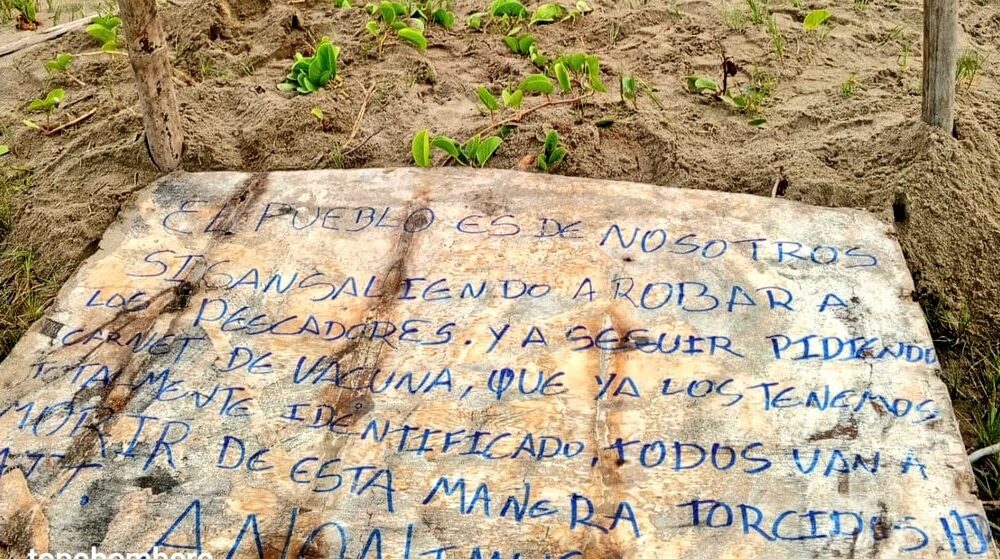 EL PUEBLO ES DE NOSOTROS
SIGANSALIENDO A ROBAR A
LOS PESCADORES. Y A SEGUIR PIDIENDO
CARNET DE VACUNA, QUE YA LOS TENEMOS
TOTAMENTE IDENTIFICADO, TODOS VAN A
MORIR. DE ESTA MANERA TORCIDOS HJP
ATT.
ANONIMUS